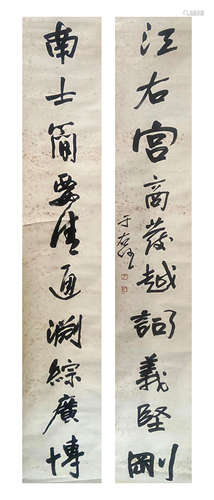 江右宮商發越詞義堅剛
于右任
南士簡要清通淵綜廣博